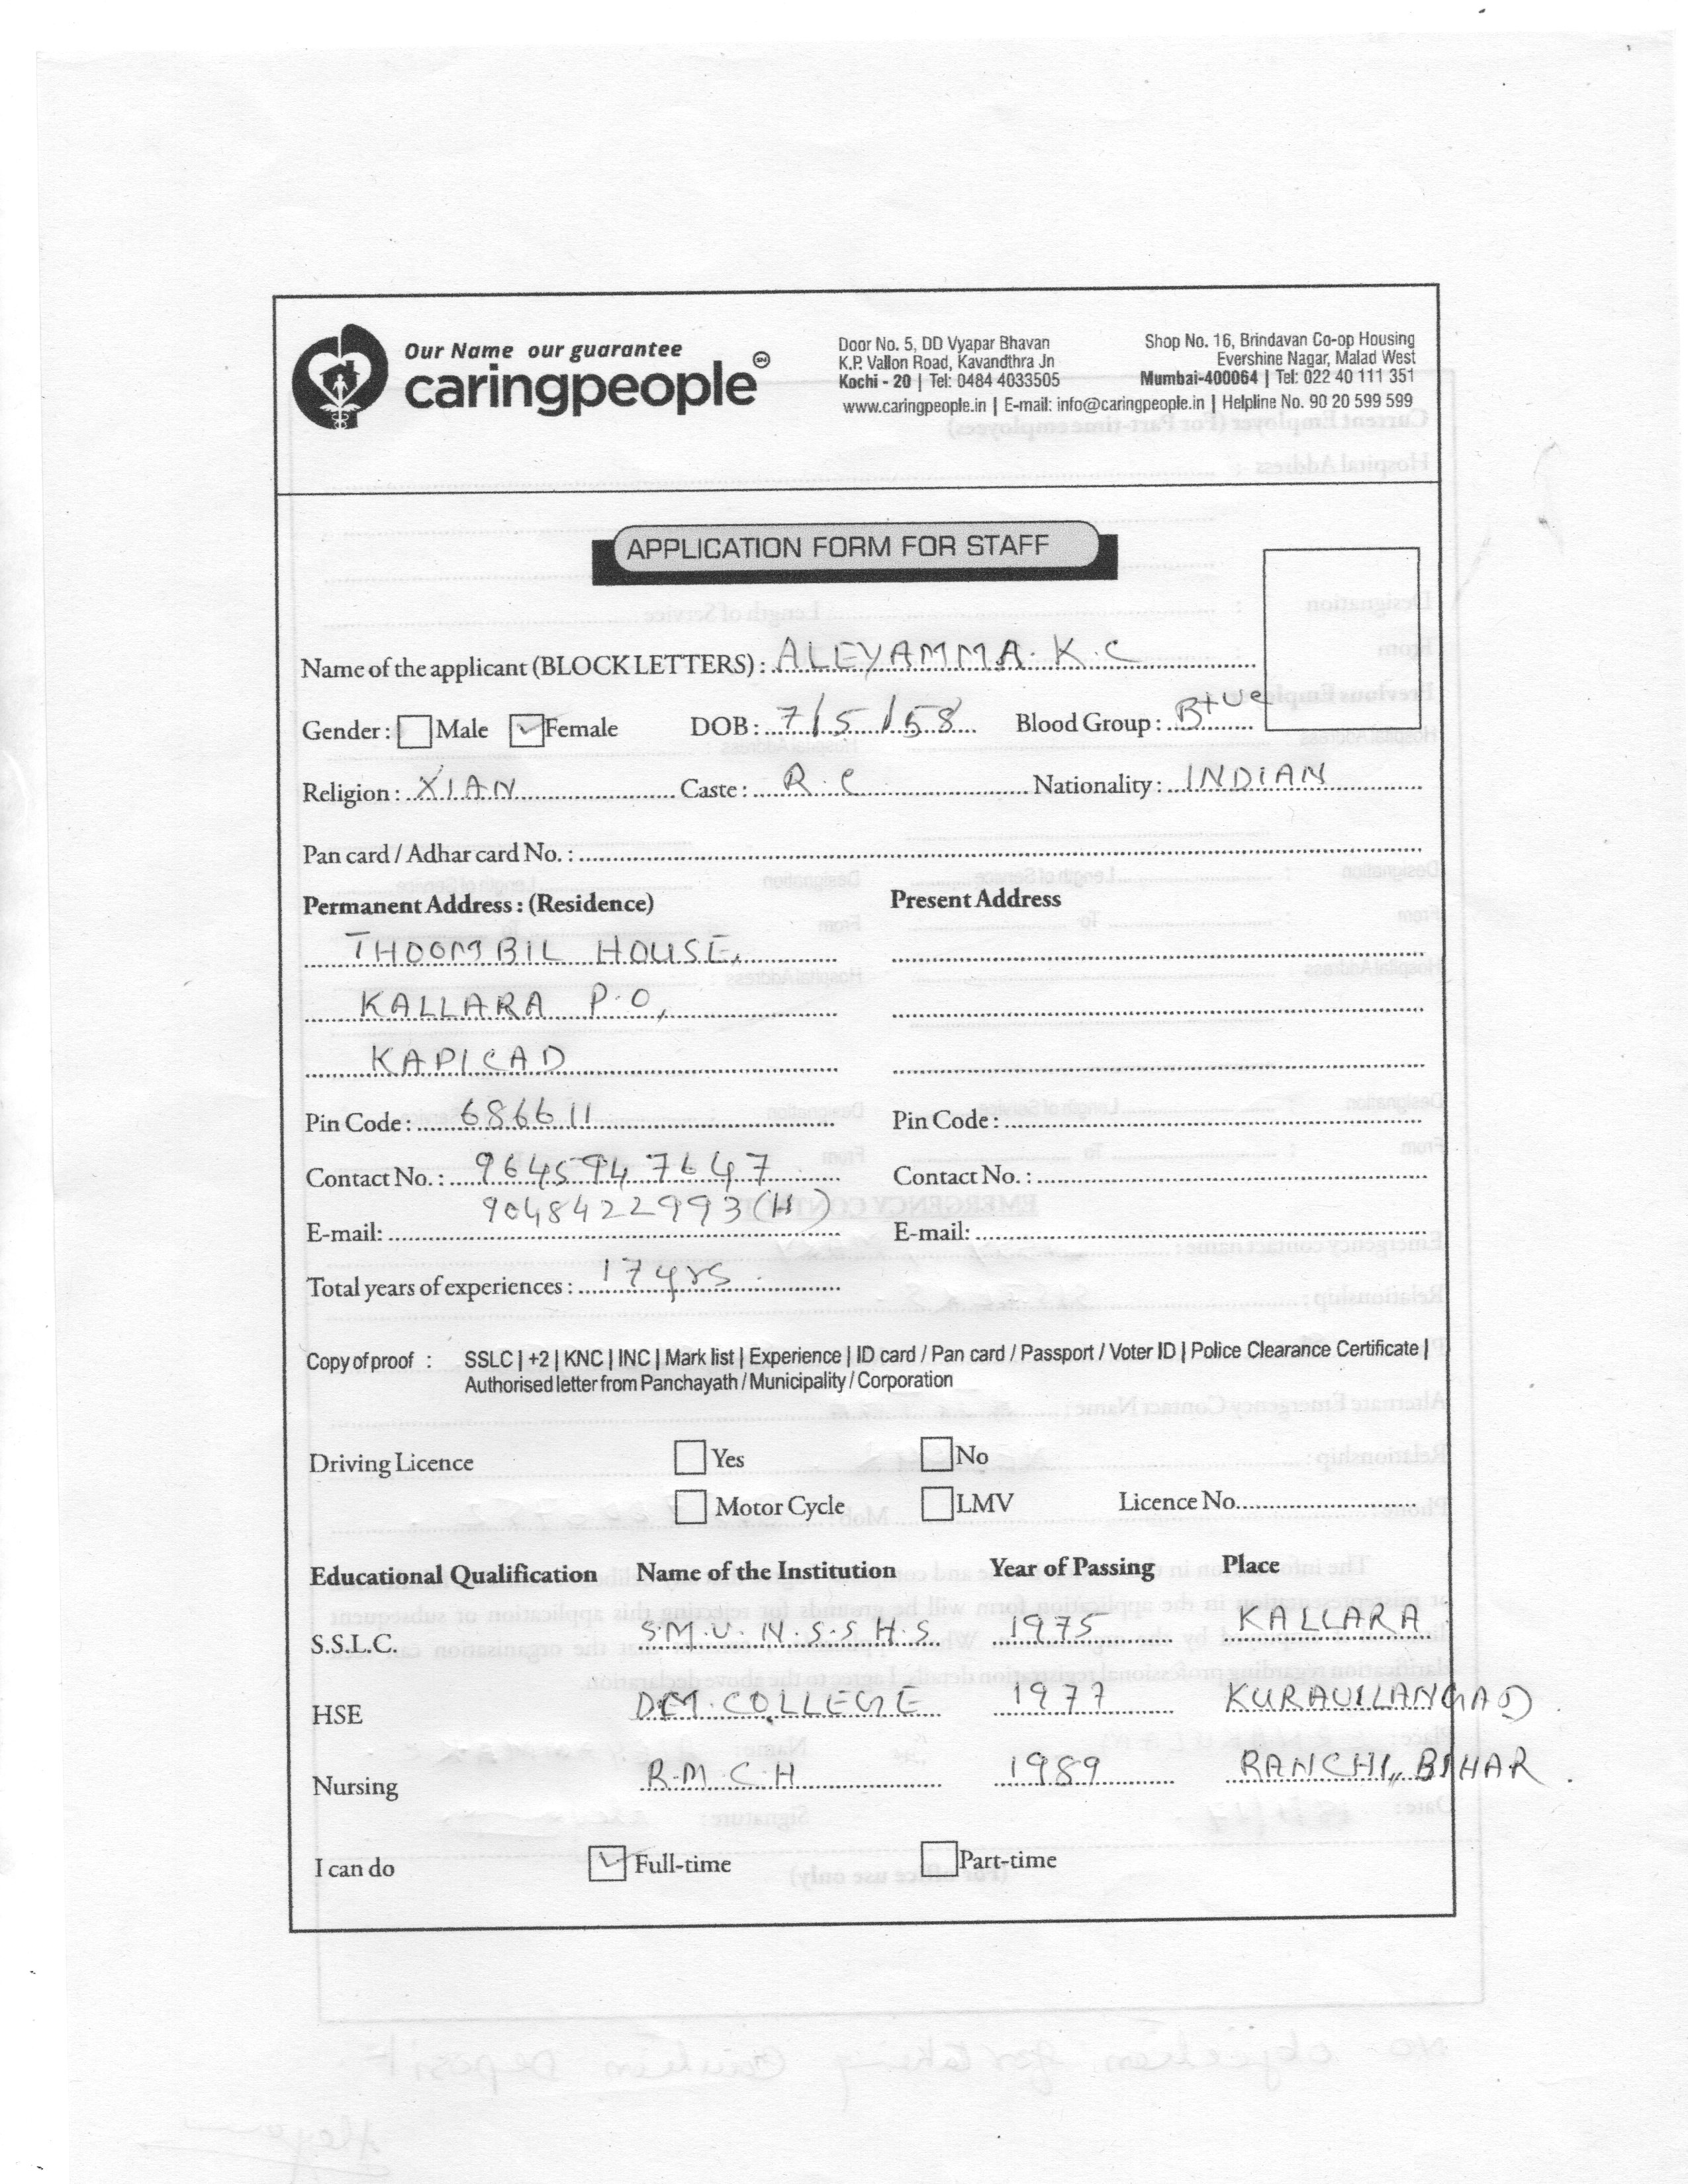 Our Name our guarantee
caringpeople
SM
Door No. 5, DD Vyapar Bhavan
K.P. Vallon Road, Kavandthra Jn
Kochi - 20 | Tel: 0484 4033505
Shop No. 16, Brindavan Co-op Housing
Evershine Nagar, Malad West
Mumbai-400064 | Tel: 022 40 111 351
www.caringpeople.in | E-mail: info@caringpeople.in | Helpline No. 90 20 599 599
APPLICATION FORM FOR STAFF
Name of the applicant (BLOCK LETTERS) : ALEYAMMA. K. C
Gender : Male Female DOB : 7/5/58 Blood Group : B+ve
Religion : XIAN Caste : R.C Nationality : INDIAN
Pan card / Adhar card No. :
Permanent Address : (Residence) Present Address
THOOMBIL HOUSE,
KALLARA P.O,
KAPICAD
Pin Code : 686611 Pin Code :
Contact No. : 9645947647 Contact No. :
9048422993 (H)
E-mail: E-mail:
Total years of experiences : 17 yrs
Copy of proof : SSLC | +2 | KNC | INC | Mark list | Experience | ID card / Pan card / Passport / Voter ID | Police Clearance Certificate |
Authorised letter from Panchayath / Municipality / Corporation
Driving Licence Yes No
Motor Cycle LMV Licence No.
Educational Qualification Name of the Institution Year of Passing Place
S.S.L.C. S.M.V.N.S.S H.S. 1975 KALLARA
HSE DEM. COLLEGE 1977 KURAVILANGAD
Nursing R.M.C.H 1989 RANCHI, BIHAR
I can do Full-time Part-time